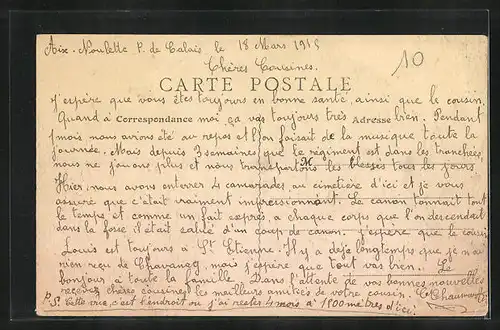 Aix-Noulette P. de Calais, le 18 Mars 1915
10
Chères Cousines.
CARTE POSTALE
J'espère que vous êtes toujours en bonne santé, ainsi que le cousin.
Quand à Correspondance moi ça va toujours très Adresse bien. Pendant
1 mois nous avions été au repos et l'on faisait de la musique toute la
journée. Mais depuis 3 semaines que le régiment est dans les tranchées,
nous ne jouons plus et nous transportons M les blessés tous les jours.
Hier, nous avons enterrer 4 camarades au cimetière d'ici et je vous
assure que c'était vraiment impressionnant. Le canon tonnait tout
le temps et comme un fait exprès, a chaque corps que l'on descendait
dans la fosse il était salué d'un coup de canon. J'espère que le cousin
Louis est toujours à St Etienne. Il y a déjà longtemps que je n'ai
rien reçu de mais j'espère que tout vas bien. Le
bonjour à toute la famille. Dans l'attente de vos bonnes nouvelles
recevez chères cousines les meilleurs amitiés de votre cousin.
P.S. Cette vue, c'est l'endroit ou j'ai restés 4 mois à 1800 mètres d'ici.